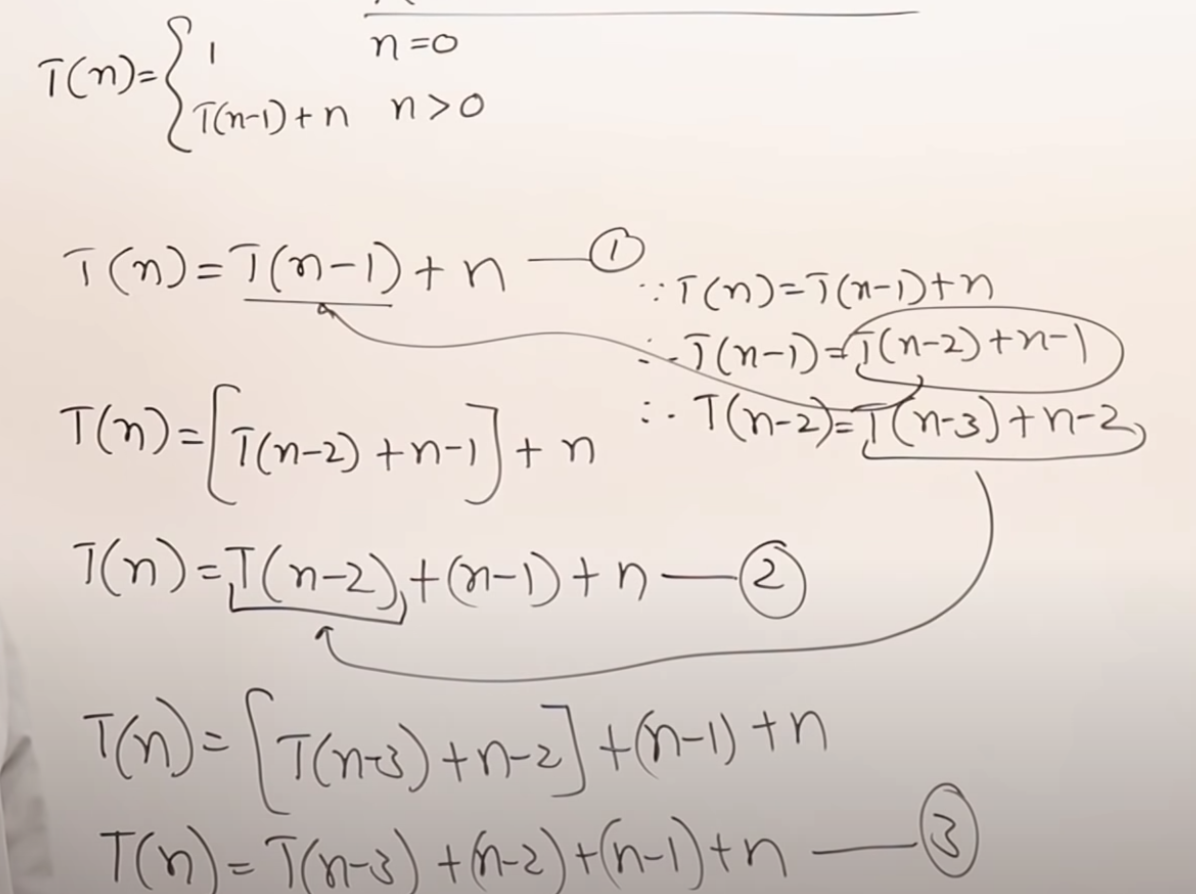 n=0
T(n)={ 1
T(n-1)+n n>0
T(n)=T(n-1)+n —①
∵T(n)=T(n-1)+n
∴T(n-1)=T(n-2)+n-1
∴T(n-2)=T(n-3)+n-2
T(n)=[T(n-2)+n-1]+n
T(n)=T(n-2)+(n-1)+n—②
T(n)=[T(n-3)+n-2]+(n-1)+n
T(n)=T(n-3)+(n-2)+(n-1)+n —③